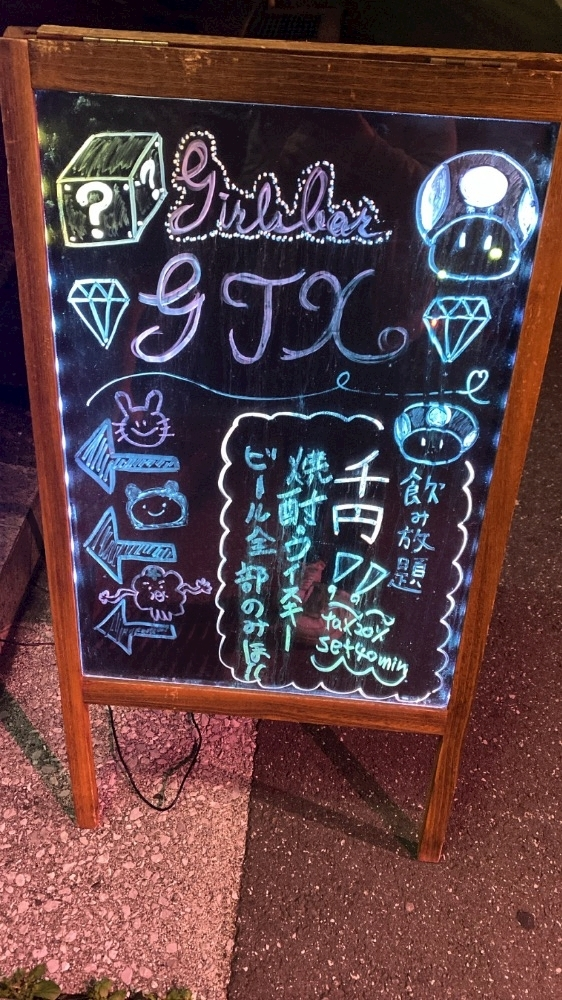 ? ?
Girls bar
GTX
飲み放題
千円!!
tax20%
set40min
焼酎、ウイスキー
ビール全部のみほ